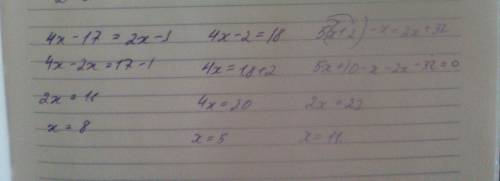 4x-17=2x-1
4x-2x=17-1
2x=11
x=8
4x-2=18
4x=18+2
4x=20
x=5
5(x+2)-x-2x+32
5x+10-x-2x-32=0
2x=22
x=11